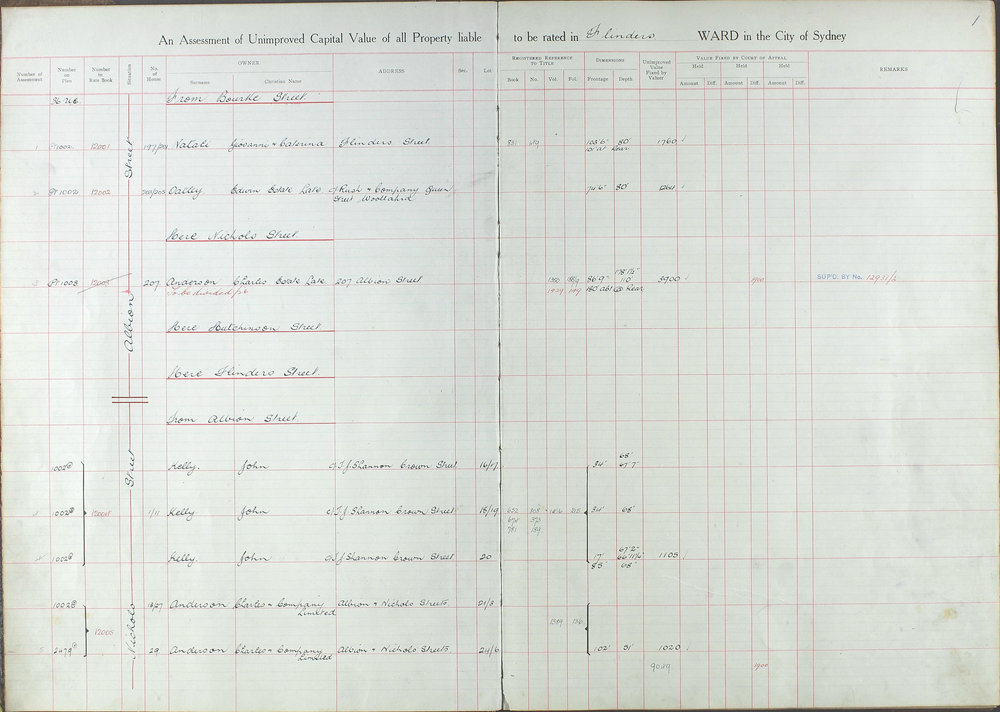 1
An Assessment of Unimproved Capital Value of all Property liable to be rated in Flinders WARD in the City of Sydney
Number of Assessment Number on Plan Number in Rate Book Situation No. of House OWNER Surname Christian Name ADDRESS Sec. Lot REGISTERED REFERENCE TO TITLE Book No. Vol. Fol. DIMENSIONS Frontage Depth Unimproved Value Fixed by Valuer VALUE FIXED BY COURT OF APPEAL Held Amount Diff. Held Amount Diff. Held Amount Diff. REMARKS
From Bourke Street
Albion Street
1 Pt 1002 12001 197/201 Natali Giovanni & Caterina Flinders Street 103'6" 80' 1760
at Rear
2 Pt 1002 12002 203/205 Oatley Edwin Estate Late c/ Rush & Company Queen 74'6" 80' 1264
Street Woollahra
Here Nichols Street
178'1½"
3 Pt 1003 12003 207 Anderson Charles Estate Late 207 Albion Street 86'9" 110' 3900 1900 SUP'D. BY No. 12931/2
To be divided Rear
Here Hutchinson Street
Here Flinders Street
From Albion Street
Nichols Street
68'
1002 Kelly John c/ T.J Shannon Crown Street 16/17 34' 67'7"
4 1002 12004 1/11 Kelly John c/ T.J Shannon Crown Street 18/19 34' 68'
67'2"
1002 Kelly John c/ T.J Shannon Crown Street 20 17' 66'11¼" 1105
85' 68'
1002 Anderson Charles & Company Limited Albion & Nichols Streets 21/3
12005 1389 136
5 2479 29 Anderson Charles & Company Limited Albion & Nichols Streets 24/6 102' 51' 1020
9049 1900